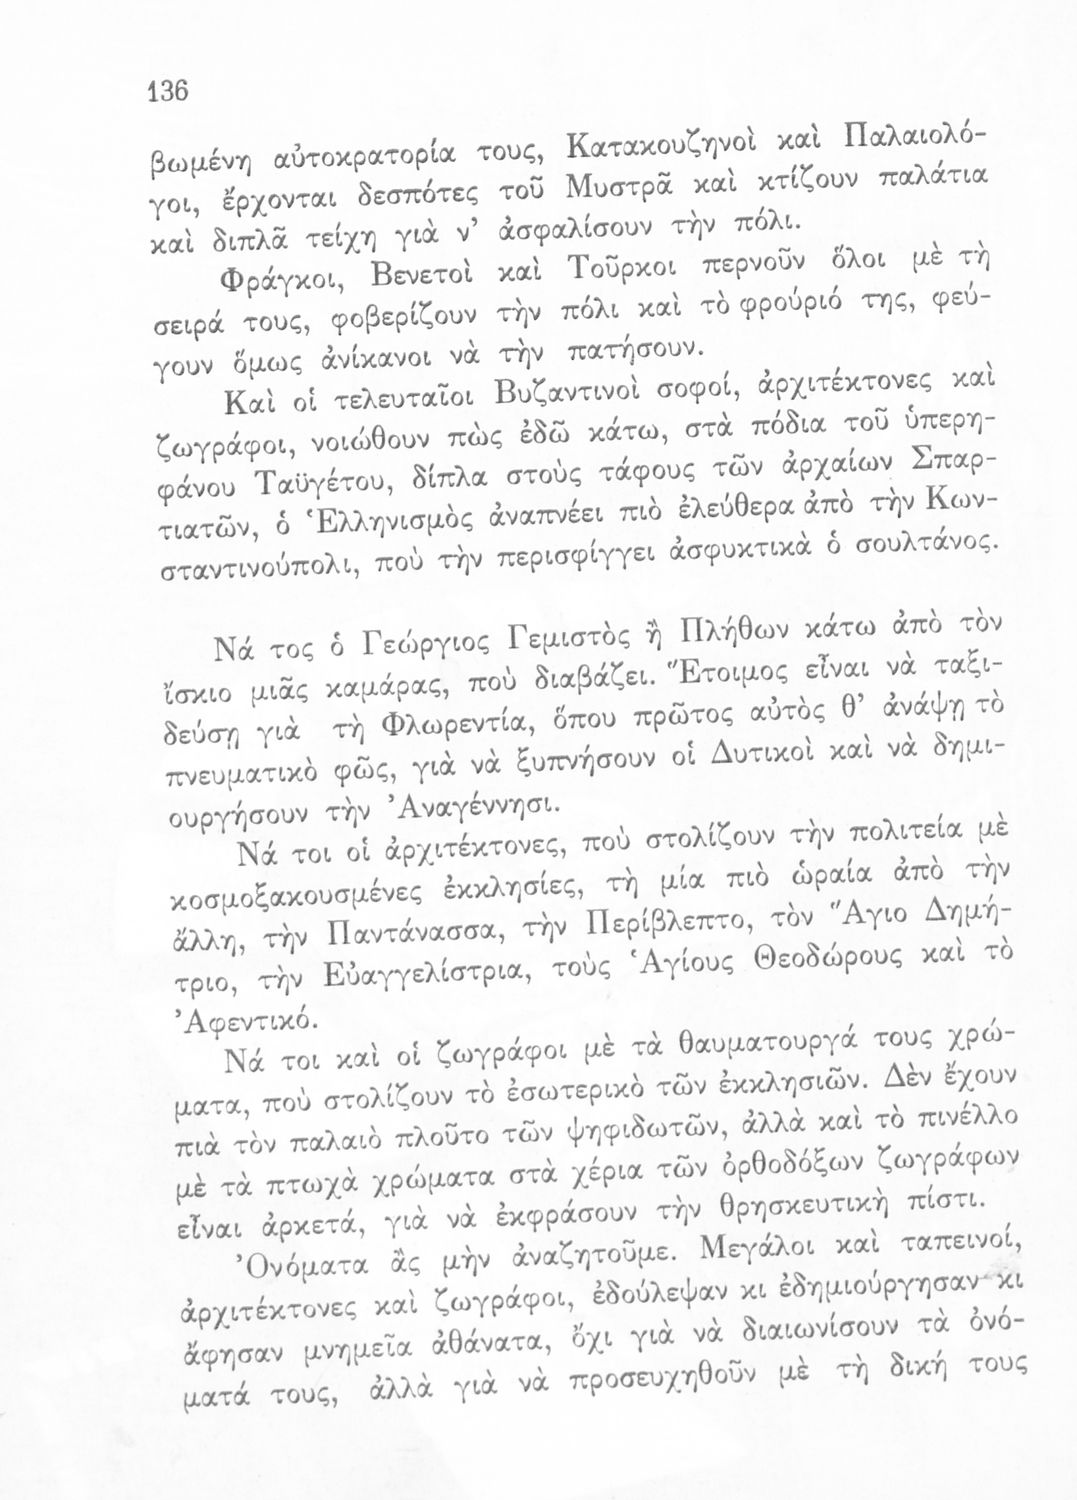 136
βωμένη αὐτοκρατορία τους, Κατακουζηνοὶ καὶ Παλαιολό-
γοι, ἔρχονται δεσπότες τοῦ Μυστρᾶ καὶ κτίζουν παλάτια
καὶ διπλᾶ τείχη γιὰ ν’ ἀσφαλίσουν τὴν πόλι.
Φράγκοι, Βενετοὶ καὶ Τοῦρκοι περνοῦν ὅλοι μὲ τὴ
σειρά τους, φοβερίζουν τὴν πόλι καὶ τὸ φρούριό της, φεύ-
γουν ὅμως ἀνίκανοι νὰ τὴν πατήσουν.
Καὶ οἱ τελευταῖοι Βυζαντινοὶ σοφοί, ἀρχιτέκτονες καὶ
ζωγράφοι, νοιώθουν πὼς ἐδῶ κάτω, στὰ πόδια τοῦ ὑπερη-
φάνου Ταϋγέτου, δίπλα στοὺς τάφους τῶν ἀρχαίων Σπαρ-
τιατῶν, ὁ Ἑλληνισμὸς ἀναπνέει πιὸ ἐλεύθερα ἀπὸ τὴν Κων-
σταντινούπολι, ποὺ τὴν περισφίγγει ἀσφυκτικὰ ὁ σουλτάνος.
Νά τος ὁ Γεώργιος Γεμιστὸς ἢ Πλήθων κάτω ἀπὸ τὸν
ἴσκιο μιᾶς καμάρας, ποὺ διαβάζει. Ἕτοιμος εἶναι νὰ ταξι-
δεύσῃ γιὰ τὴ Φλωρεντία, ὅπου πρῶτος αὐτὸς θ’ ἀνάψῃ τὸ
πνευματικὸ φῶς, γιὰ νὰ ξυπνήσουν οἱ Δυτικοὶ καὶ νὰ δημι-
ουργήσουν τὴν Ἀναγέννησι.
Νά τοι οἱ ἀρχιτέκτονες, ποὺ στολίζουν τὴν πολιτεία μὲ
κοσμοξακουσμένες ἐκκλησίες, τὴ μία πιὸ ὡραία ἀπὸ τὴν
ἄλλη, τὴν Παντάνασσα, τὴν Περίβλεπτο, τὸν Ἅγιο Δημή-
τριο, τὴν Εὐαγγελίστρια, τοὺς Ἁγίους Θεοδώρους καὶ τὸ
Ἀφεντικό.
Νά τοι καὶ οἱ ζωγράφοι μὲ τὰ θαυματουργά τους χρώ-
ματα, ποὺ στολίζουν τὸ ἐσωτερικὸ τῶν ἐκκλησιῶν. Δὲν ἔχουν
πιὰ τὸν παλαιὸ πλοῦτο τῶν ψηφιδωτῶν, ἀλλὰ καὶ τὸ πινέλλο
μὲ τὰ πτωχὰ χρώματα στὰ χέρια τῶν ὀρθοδόξων ζωγράφων
εἶναι ἀρκετά, γιὰ νὰ ἐκφράσουν τὴν θρησκευτικὴ πίστι.
Ὀνόματα ἂς μὴν ἀναζητοῦμε. Μεγάλοι καὶ ταπεινοί,
ἀρχιτέκτονες καὶ ζωγράφοι, ἐδούλεψαν κι ἐδημιούργησαν κι
ἄφησαν μνημεῖα ἀθάνατα, ὄχι γιὰ νὰ διαιωνίσουν τὰ ὀνό-
ματά τους, ἀλλὰ γιὰ νὰ προσευχηθοῦν μὲ τὴ δική τους